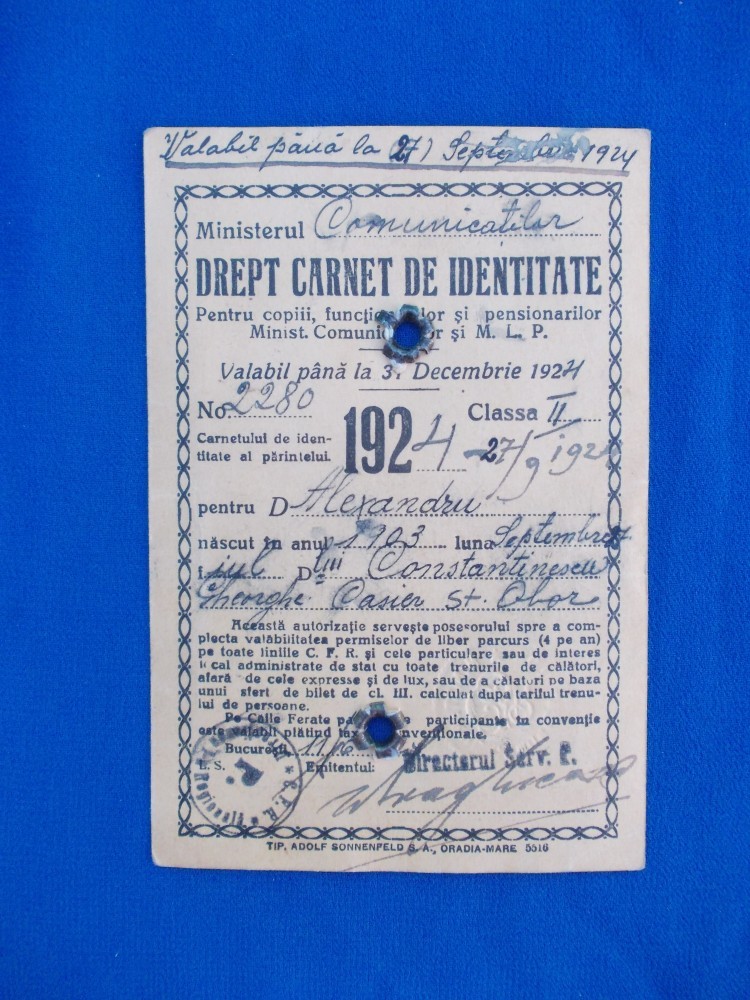 Valabil până la 27 Septembrie 1924
Ministerul Comunicațiilor
DREPT CARNET DE IDENTITATE
Pentru copiii, funcționarilor și pensionarilor
Minist. Comunic r și M. L. P.
Valabil până la 31 Decembrie 1924
No. 2280
Classa II
Carnetului de iden-
titate al părintelui.
1924
27/9 192
pentru D Alexandru
născut în anul 1903 luna Septembre 27
fiul Dlui Constantinescu
Gheorghe Casier St. Obor
Această autorizație servește posesorului spre a com-
plecta valabilitatea permiselor de liber parcurs (4 pe an)
pe toate liniile C. F. R. și cele particulare sau de interes
local administrate de stat cu toate trenurile de călători,
afară de cele expresse și de lux, sau de a călatori pe baza
unui sfert de bilet de cl. III. calculat dupa tariful trenu-
lui de persoane.
Pe Căile Ferate pa e participante în convenție
este valabil plătind tax nvenționale.
București
L. S.
Emitentul:
Directorul Serv. P.
C. F. R.
P.
TIP. ADOLF SONNENFELD S. A., ORADIA-MARE 5516